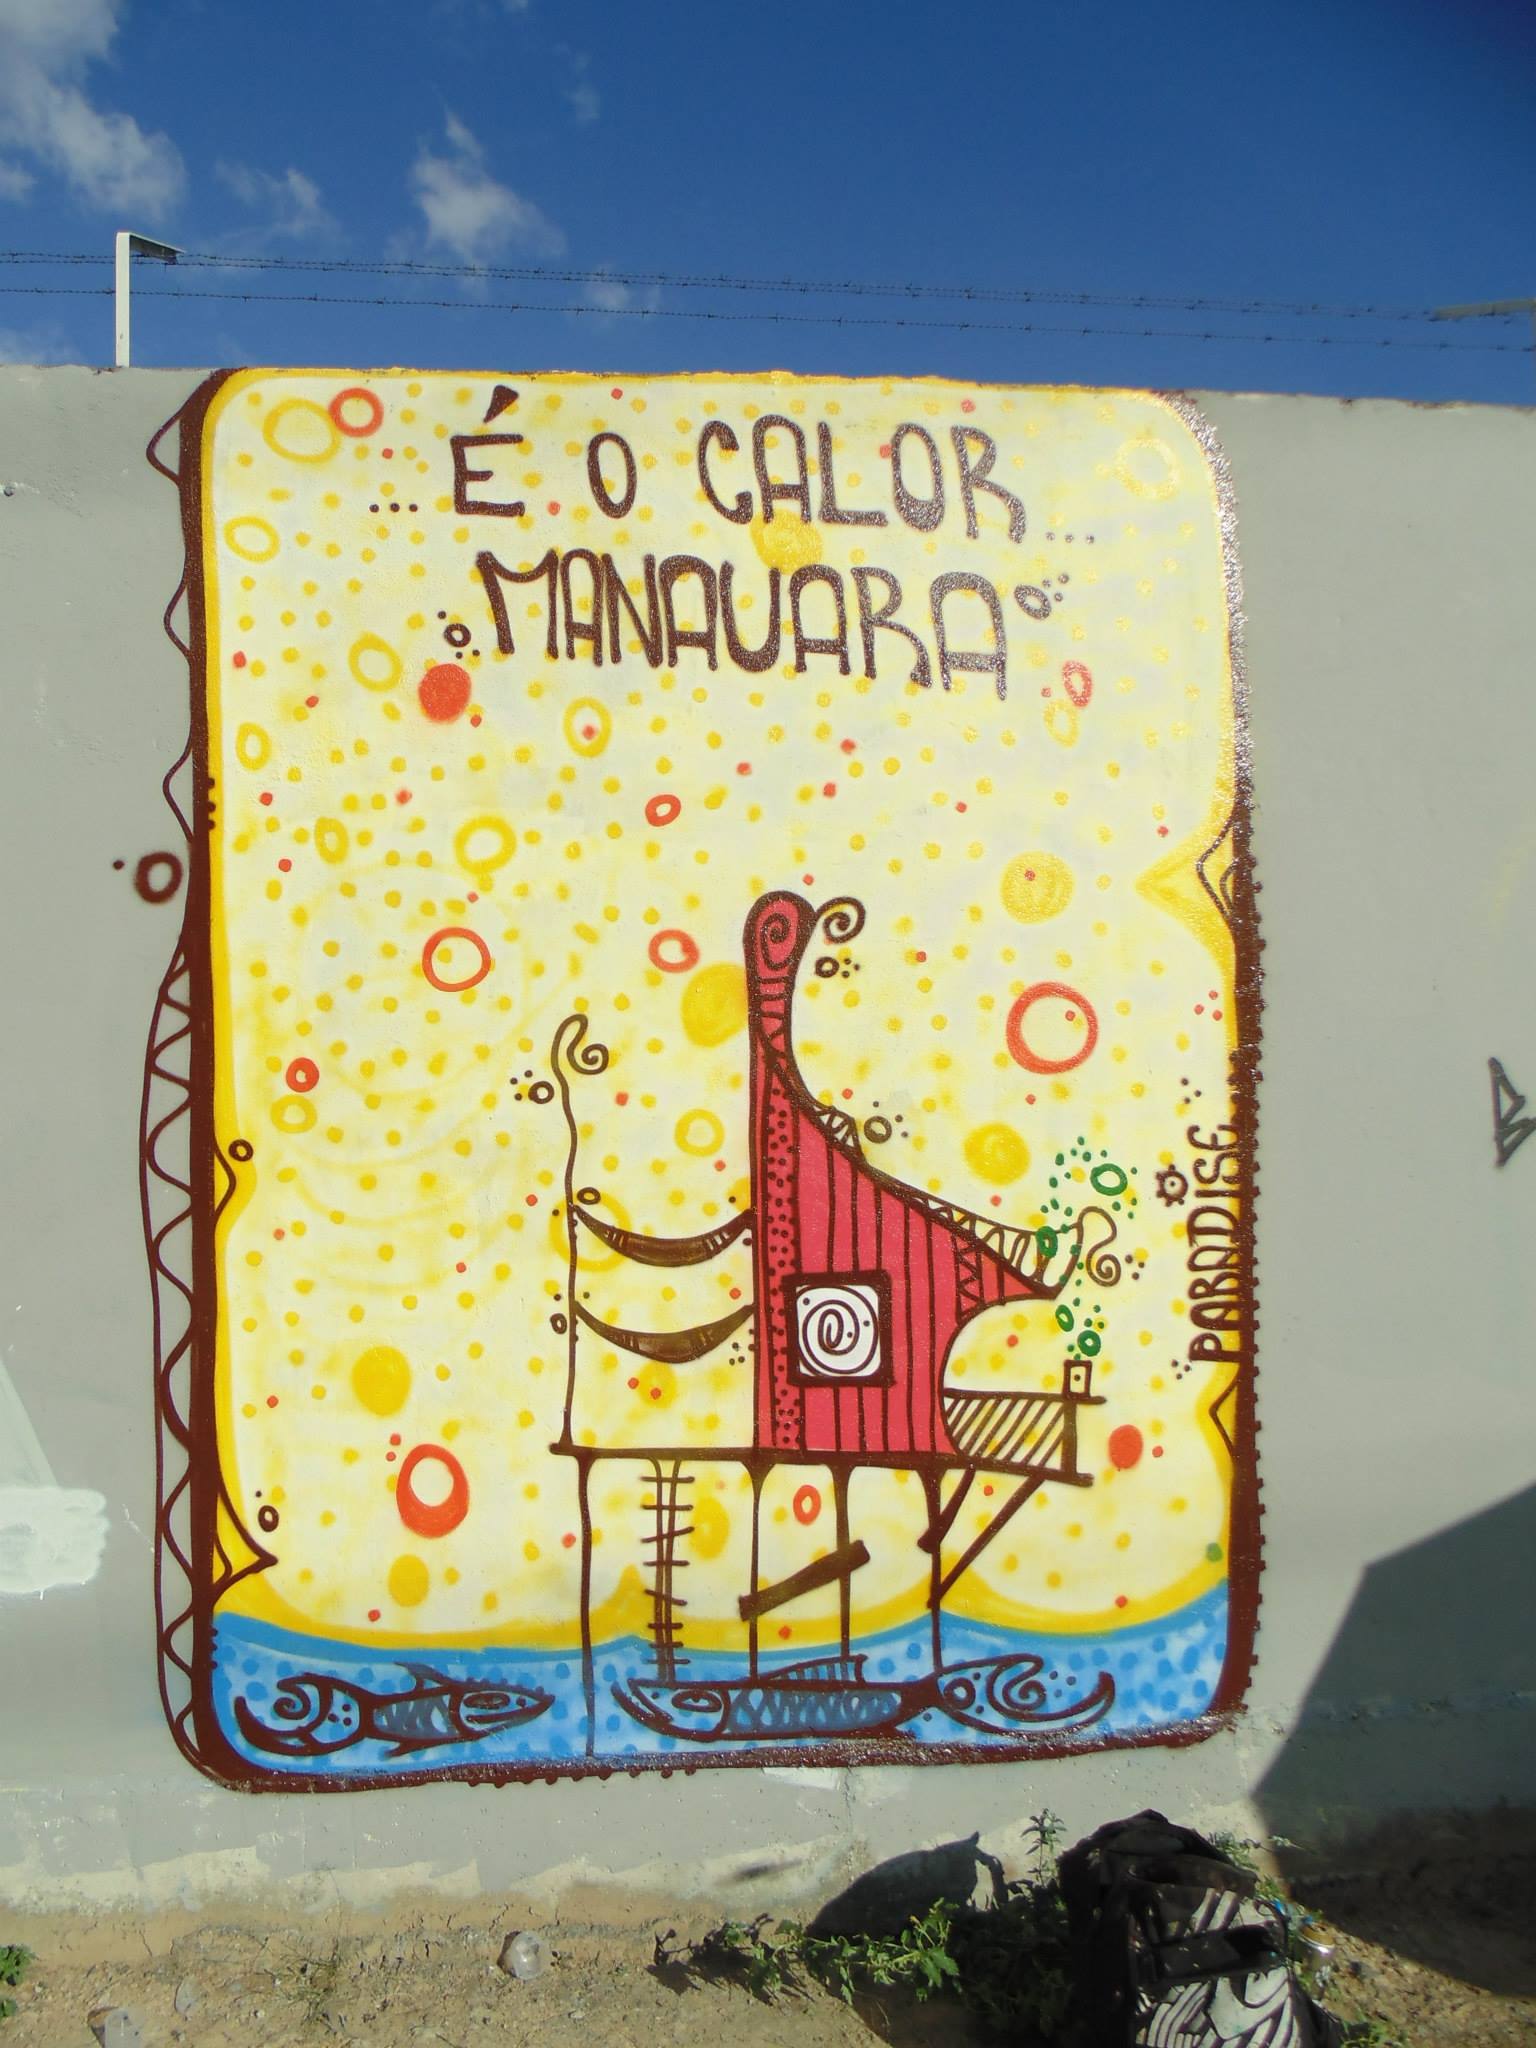 ...É O CALOR...
MANAUARA
PARADISE